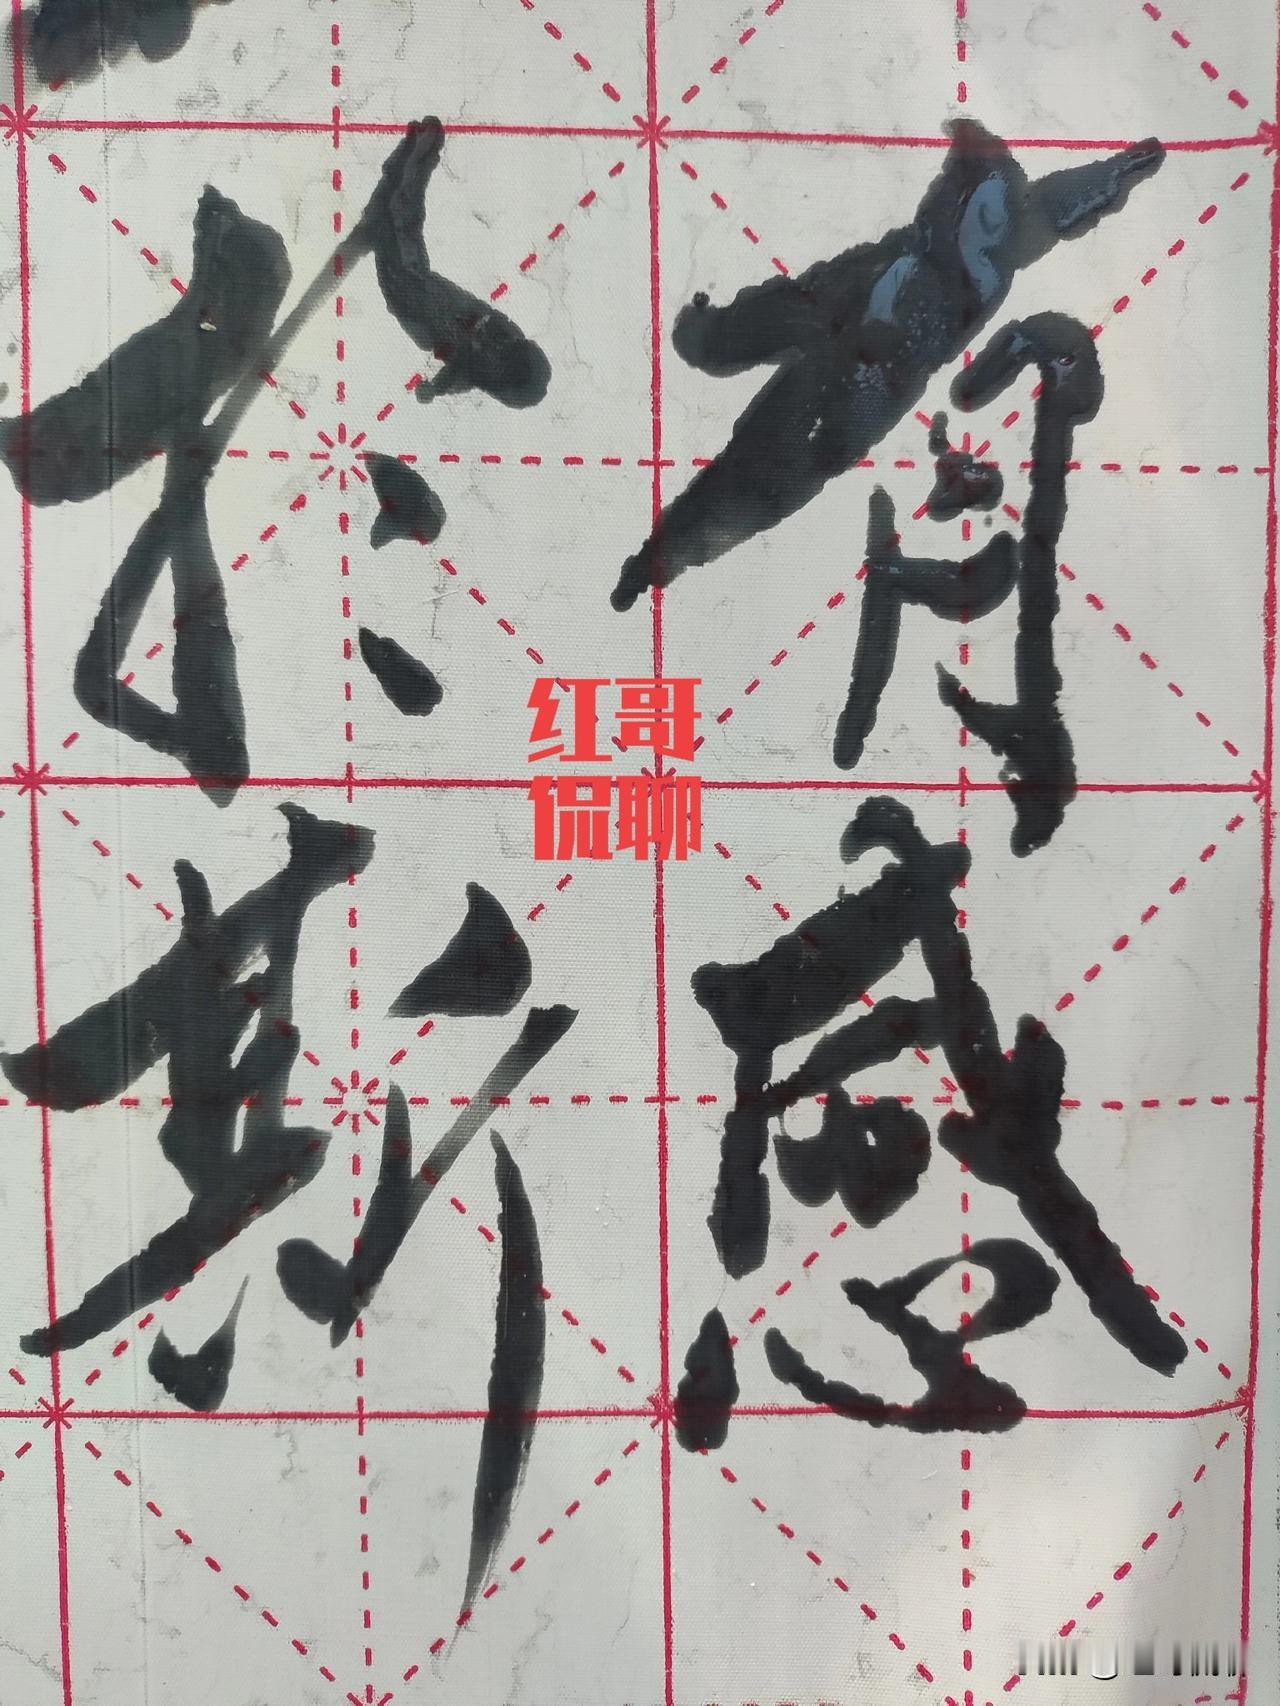 有感
於斯
红哥
侃聊